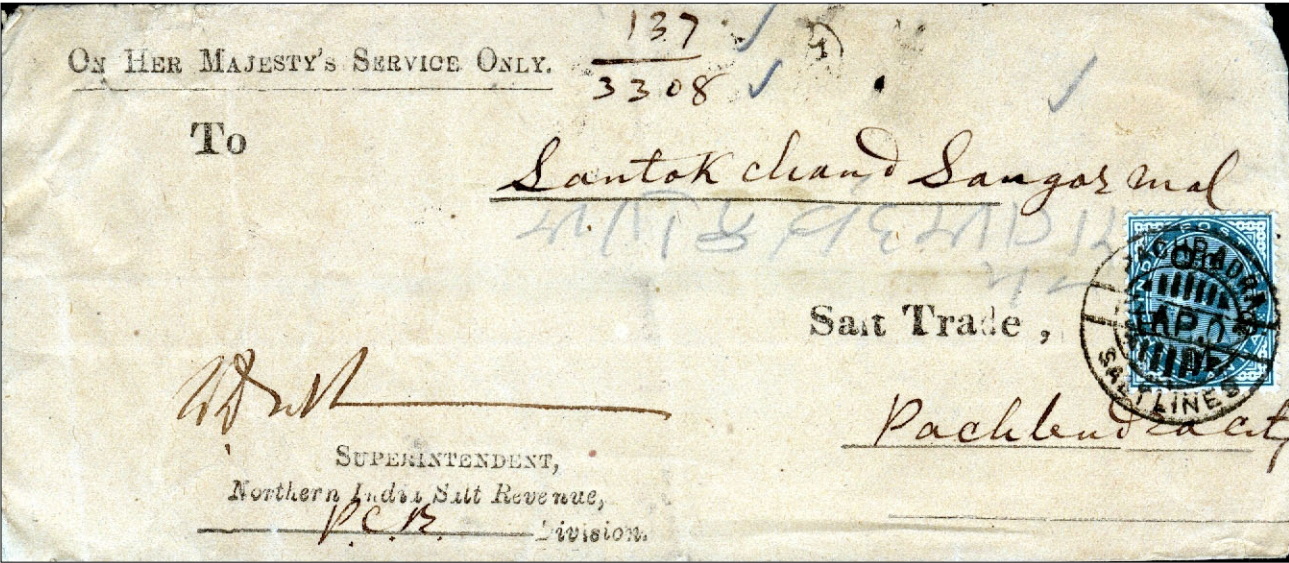 137
ON HER MAJESTY'S SERVICE ONLY.
3308
To
Santok chand Sangor mal
Salt Trade,
PACHBADRA
SALT LINES
Pachbudra city
SUPERINTENDENT,
Northern India Salt Revenue,
P.C.B. Division.